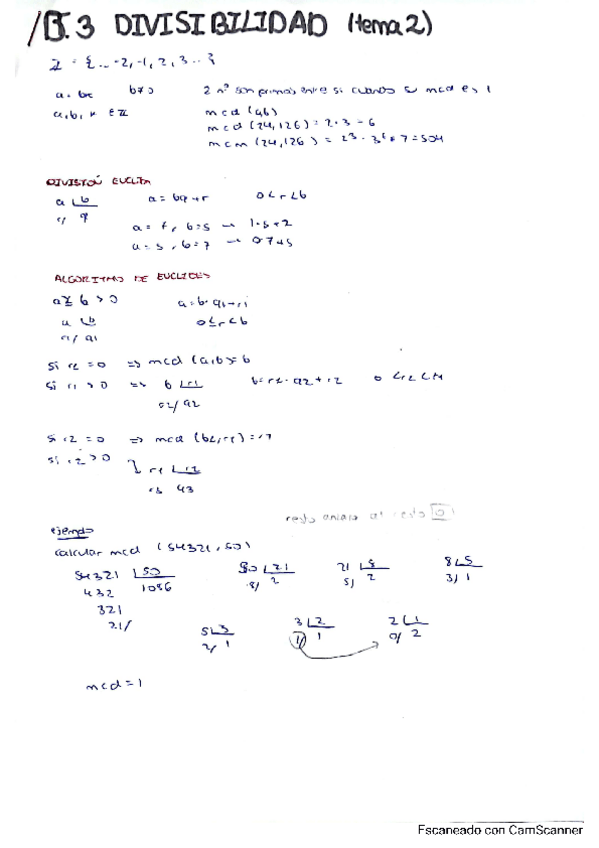 T.3 DIVISIBILIDAD (tema 2)
Z = {... -2, -1, 2, 3 ...}
a = bc b≠0 2 nº son primos entre si cuando su mcd es 1
a, b, r ∈ Z mcd (a,b)
mcd (24, 126) = 2·3 = 6
mcm (24, 126) = 2³ · 3² · 7 = 504
DIVISIÓN EUCLÍDEA
a | b a = bq + r 0 ≤ r < b
r/ q
a = 7, b = 5 → 1·5+2
a = 5, b = 7 → 0·7+5
ALGORITMO DE EUCLIDES
a ≥ b > 0 a = b·q1 + r1
a | b 0 ≤ r < b
r1/ q1
si r1 = 0 => mcd (a,b) = b
si r1 > 0 => b | r1 b = r1·q2 + r2 0 < r2 < r1
r2/ q2
si r2 = 0 => mcd (b, r1) = r1
si r2 > 0 r1 | r2
r3 q3
resto al resto 0
ejemplo
calcular mcd (54321, 50)
54321 | 50 50 | 21 21 | 8 8 | 5
432 1086 8/ 2 5/ 2 3/ 1
321
21/
5 | 3 3 | 2 2 | 1
2/ 1 1/ 1 0/ 2
mcd = 1
Escaneado con CamScanner